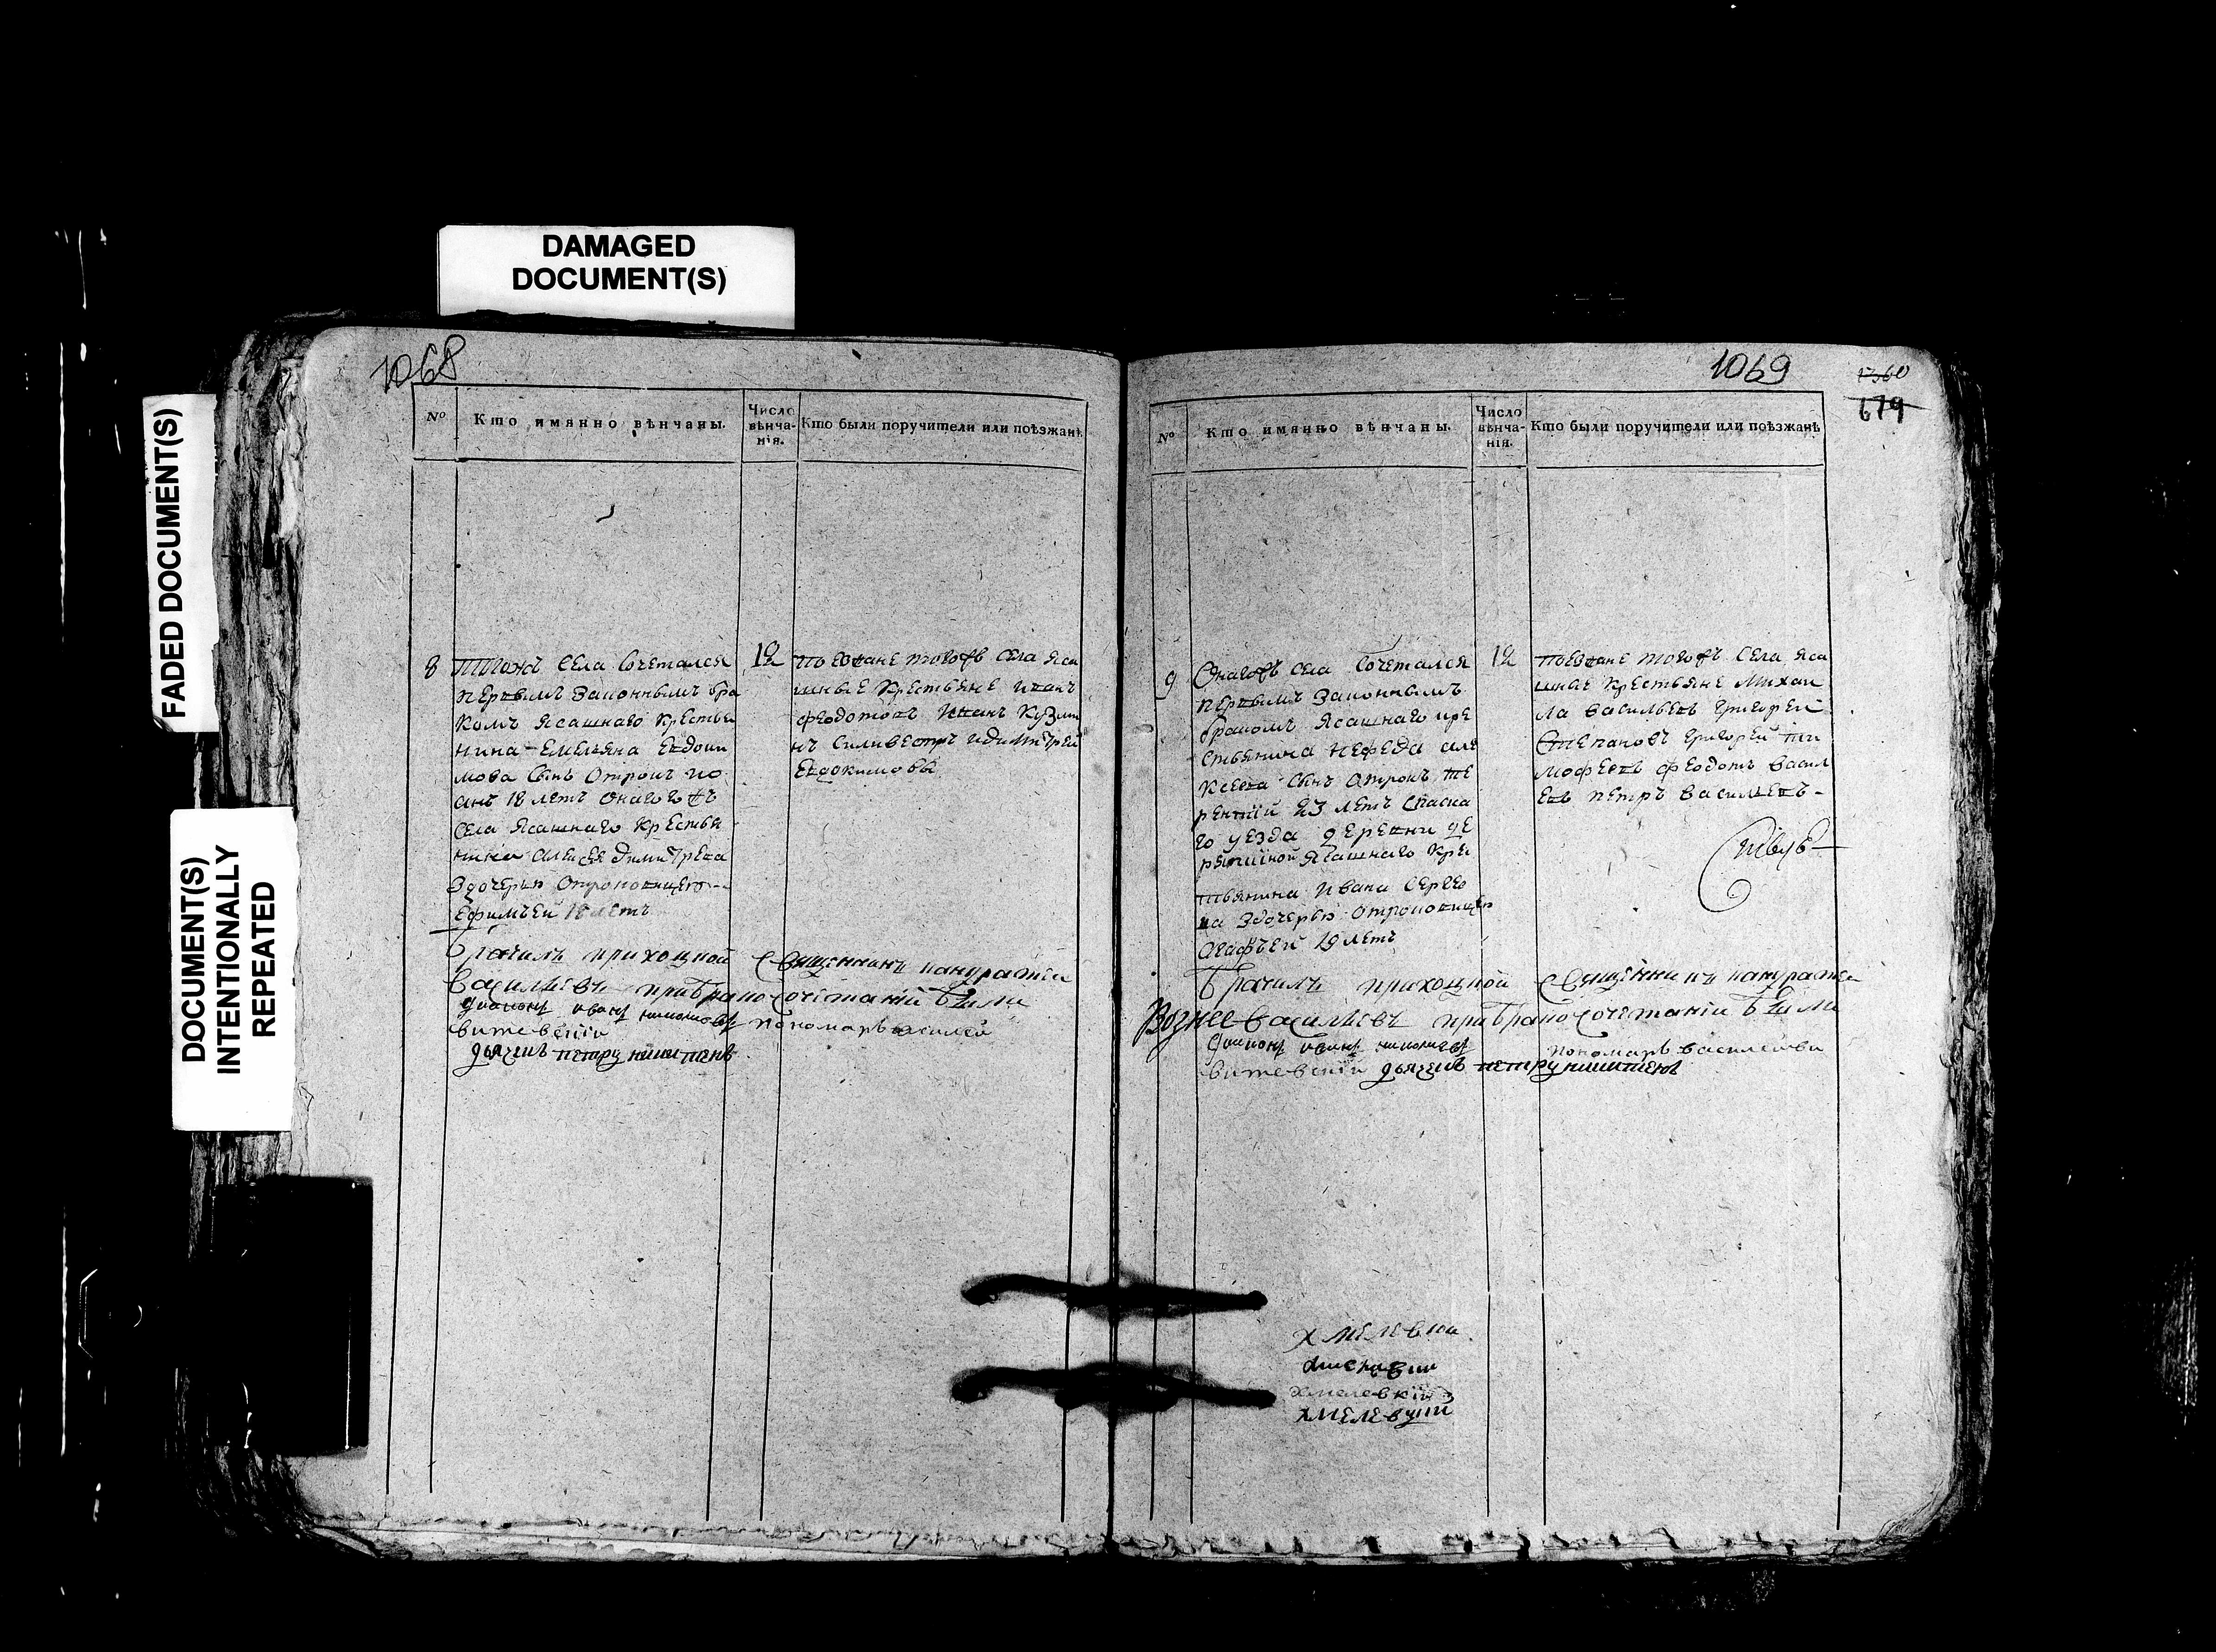 DAMAGED
DOCUMENT(S)
FADED DOCUMENT(S)
DOCUMENT(S)
INTENTIONALLY
REPEATED
1068
№ Кто имянно вѣнчаны. Число вѣнча-нія. Кто были поручители или поѣзжанѣ
8 Тогожъ села сочетался
первымъ законнымъ бра
комъ ясашнаго крестья
нина Емельяна Евдоки
мова сынъ отрокъ ио
анъ 18 летъ онагожъ
села ясашнаго крестья
нина алексея димитрева
здочерью отроковицею
Ефимъей 18 летъ
12
поезжане тогожъ села яса
шные крестьяне иванъ
феодотовъ иванъ кузми
нъ силивестръ идимитрей
Евдокимовы
Брачилъ приходной священникъ панкратей
васильевъ при браносочетаніи были
диаконъ иванъ пономарь василей
витевскій
дьячекъ петръ никитинъ
1069
1360
679
№ Кто имянно вѣнчаны. Число вѣнча-нія. Кто были поручители или поѣзжанѣ
9 Онагожъ села сочетался
первымъ законнымъ
бракомъ ясашнаго кре
стьянина нефеда але
ксеева сынъ отрокъ те
рентій 23 летъ спаска
го уезда деревни
ясашнаго кре
стьянина ивана сергее
ва здочерью отроковицею
агафьей 19 летъ
12
поезжане тогожъ села яса
шные крестьяне михаи
ла васильевъ григорей
степановъ григорей ти
мофеевъ феодотъ васил
евъ петръ васильевъ
Брачилъ приходной священникъ панкратей
васильевъ при браносочетаніи были
диаконъ иванъ пономарь василей ви
витевскій дьячекъ петръ никитинъ
хмелевки
хмелевкій